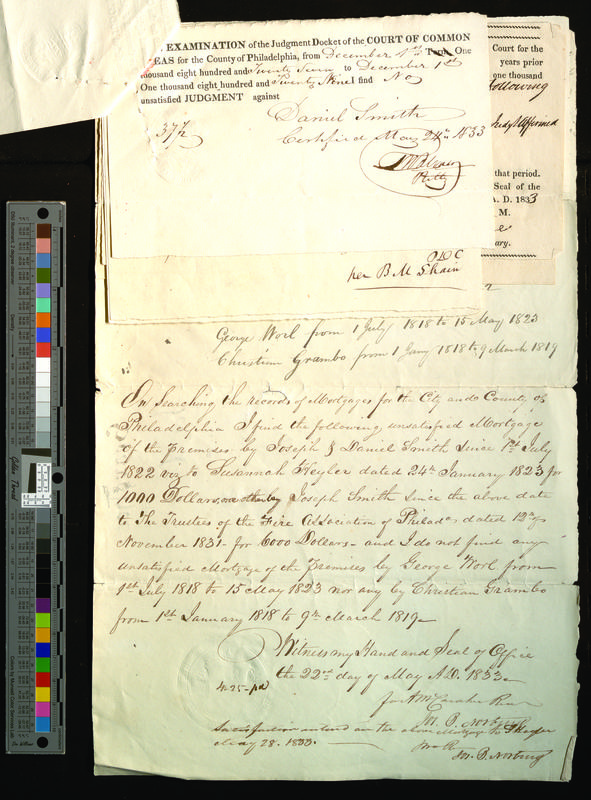 EXAMINATION of the Judgment Docket of the COURT OF COMMON
EAS for the County of Philadelphia, from December Term One
thousand eight hundred and Twenty Seven to December 1st
One thousand eight hundred and Twenty Nine I find No
unsatisfied JUDGMENT against
Daniel Smith
37½
Certified May 24th 1833
Court for the
years prior
one thousand
following
that period.
Seal of the
A. D. 1833
M.
ary.
per B M Shain
George Worl from 1 July 1818 to 15 May 1823
Christian Grambo from 1 Jany 1818 to 9 March 1819
On Searching the records of Mortgages for the City and County of
Philadelphia I find the following unsatisfied Mortgage
of the Premises by Joseph & Daniel Smith since 1st July
1822 viz to Susannah Keyler dated 24th January 1823 for
1000 Dollars, one other by Joseph Smith since the above date
to The Trustees of the Fire Association of Philada dated 12th
November 1831 - for 6000 Dollars - and I do not find any
unsatisfied Mortgage of the Premises by George Worl from
1st July 1818 to 15 May 1823 nor any by Christian Grambo
from 1st January 1818 to 9th March 1819 -
Witness my Hand and Seal of Office
the 22nd day of May A.D. 1833 -
$1.25 - pd
Satisfaction entered on the above Mortgage to
May 28. 1833.